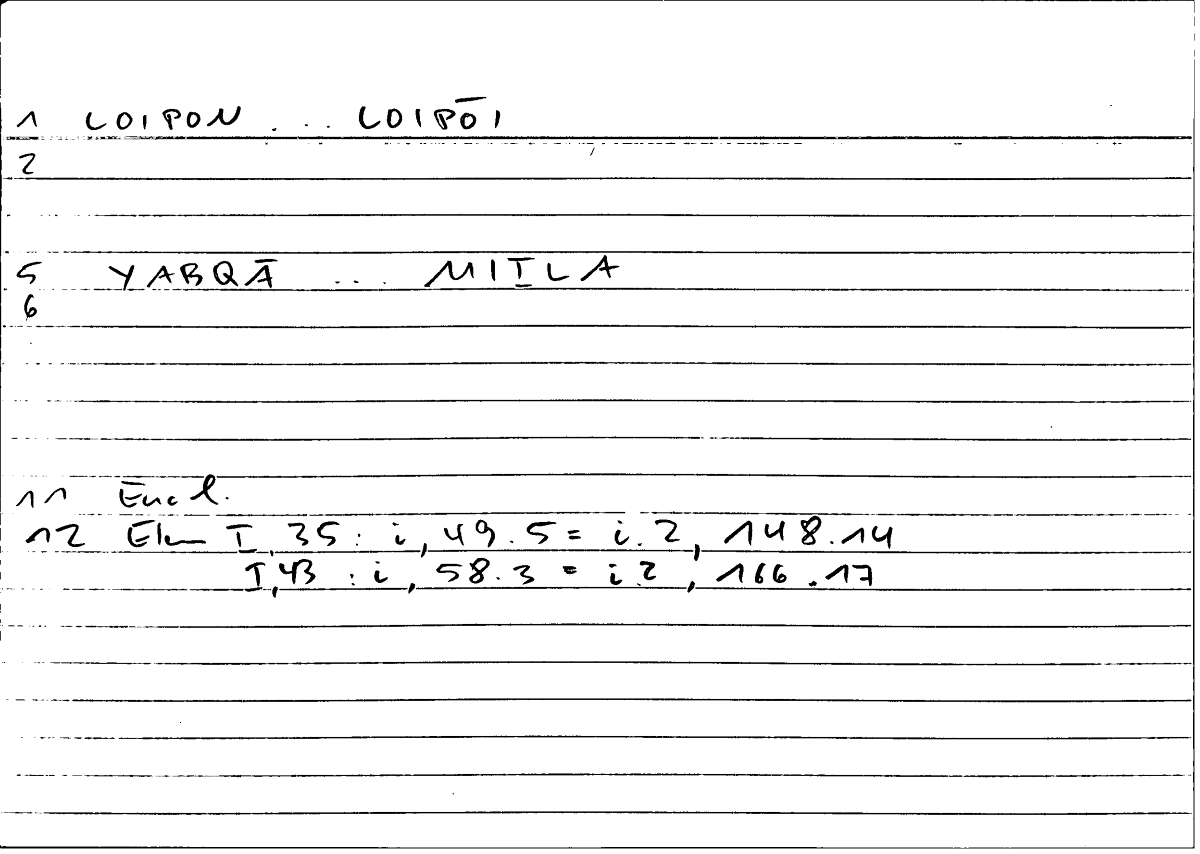 1 LOIPON ... LOIPŌI
2
5 YABQĀ ... MIṮLA
6
11 Eucl.
12 Elem I, 35 : i, 49.5 = i.2, 148.14
I,43 : i, 58.3 = i.2, 166.17